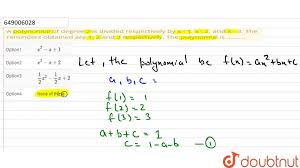 649006028
A polynomial of degree 2 is divided respectively by x - 1, x - 2, and x - 3. The
remainders obtained are 1, 2 and 3 respectively. The polynomial is
Option1 x² - x + 1
Option2 x² - x + 2
Option3 1/2 x² - 1/2 x + 2
Option4 None of these
Let, the polynomial be f(x) = ax² + bx + c
a, b, c =
f(1) = 1
f(2) = 2
f(3) = 3
a+b+c = 1
c = 1-a-b — ①
doubtnut